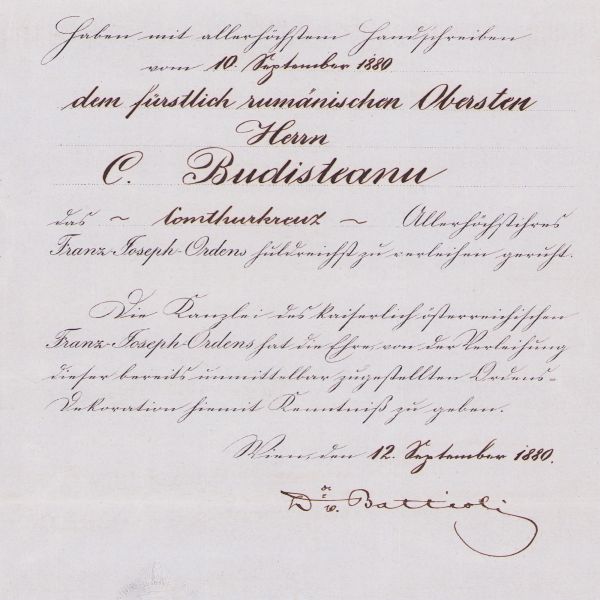 Haben mit allerhöchstem Handschreiben
vom 10. September 1880
dem fürstlich rumänischen Obersten
Herrn
C. Budisteanu
das ~ Comthurkreuz ~ Allerhöchstihres
Franz-Joseph-Ordens huldreichst zu verleihen geruht.
Die Kanzlei des kaiserlich österreichischen
Franz-Joseph-Ordens hat die Ehre, von der Verleihung
dieser bereits unmittelbar zugestellten Ordens-
Dekoration hiemit Kenntniß zu geben.
Wien, den 12. September 1880.
Dr. v.